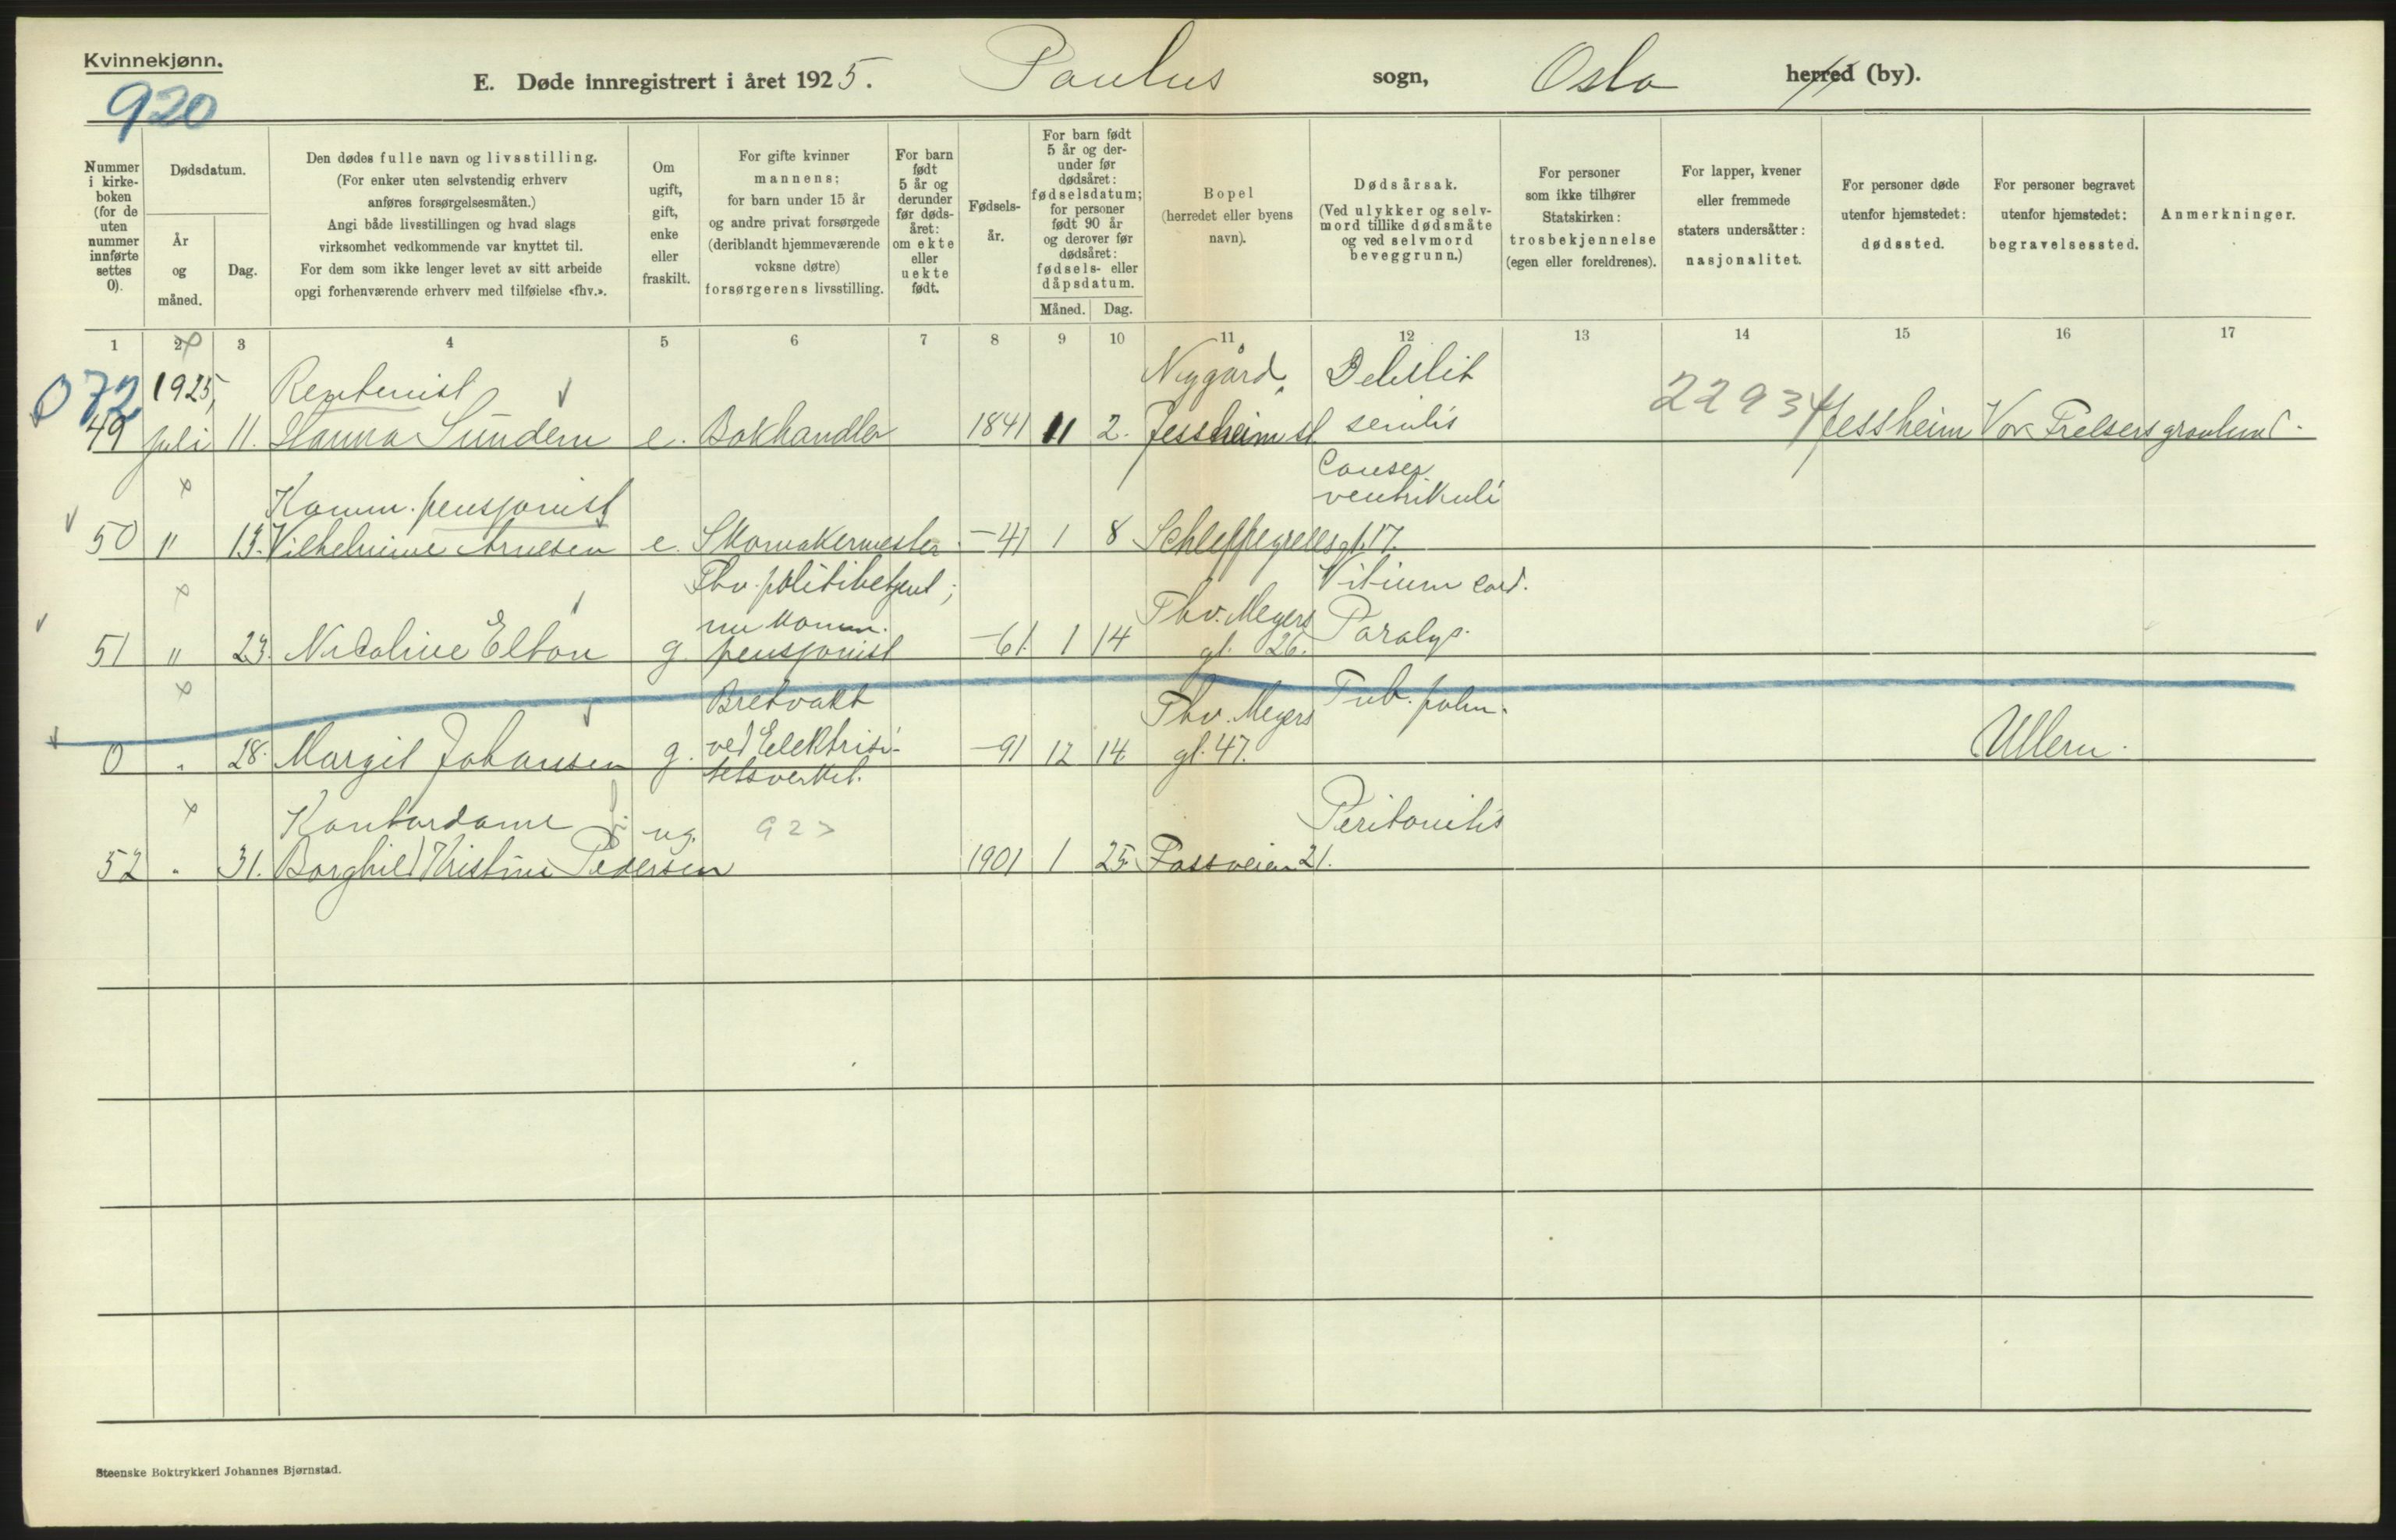 Kvinnekjønn.
920
E. Døde innregistrert i året 1925. Paulus sogn, Oslo herred (by).
Nummer i kirkeboken (for de uten nummer innførte settes 0).
Dødsdatum.
År og måned.
Dag.
Den dødes fulle navn og livsstilling.
(For enker uten selvstendig erhverv
anføres forsørgelsesmåten.)
Angi både livsstillingen og hvad slags
virksomhet vedkommende var knyttet til.
For dem som ikke lenger levet av sitt arbeide
opgi forhenværende erhverv med tilføielse «fhv.».
Om ugift, gift, enke eller fraskilt.
For gifte kvinner
mannens;
for barn under 15 år
og andre privat forsørgede
(deriblandt hjemmeværende
voksne døtre)
forsørgerens livsstilling.
For barn født 5 år og derunder før dødsåret: om ekte eller uekte født.
Fødselsår.
For barn født 5 år og derunder før dødsåret: fødselsdatum; for personer født 90 år og derover før dødsåret: fødsels- eller dåpsdatum.
Måned. Dag.
Bopel
(herredet eller byens
navn).
Dødsårsak.
(Ved ulykker og selvmord tillike dødsmåte
og ved selvmord
beveggrunn.)
For personer
som ikke tilhører
Statskirken:
trosbekjennelse
(egen eller foreldrenes).
For lapper, kvener
eller fremmede
staters undersåtter:
nasjonalitet.
For personer døde
utenfor hjemstedet:
dødssted.
For personer begravet
utenfor hjemstedet:
begravelsessted.
Anmerkninger.
1 2 3 4 5 6 7 8 9 10 11 12 13 14 15 16 17
072 1925, Rentenist Nygård, Debilit 2293
49 juli 11. Hanna Sundem e. Bokhandler 1841 11 2. Jessheim st. senilis Jessheim Vor Frelsers gravlund.
Komm. pensjonist Cancer ventrikuli
50 " 13. Vilhelmine Arnesen e. Skomakermester -41 1 8 Schleppegrellsgt. 17.
Fhv. politibetjent; Vitium cord.
nu komm. Thv. Meyers Paralys.
51 " 23. Nicoline Elton g. pensjonist -61. 1 14 gt. 26.
Bretvakt Thv. Meyers Tub. pulm.
0 " 28. Margit Johansen g. ved Elektrisi- -91 12 14. gt. 47. Ullern.
tetsverket.
Kontordame ug. Peritonitis
52 " 31. Borghild Kristine Pedersen 1901 1 25 Fossveien 21.
Steenske Boktrykkeri Johannes Bjørnstad.